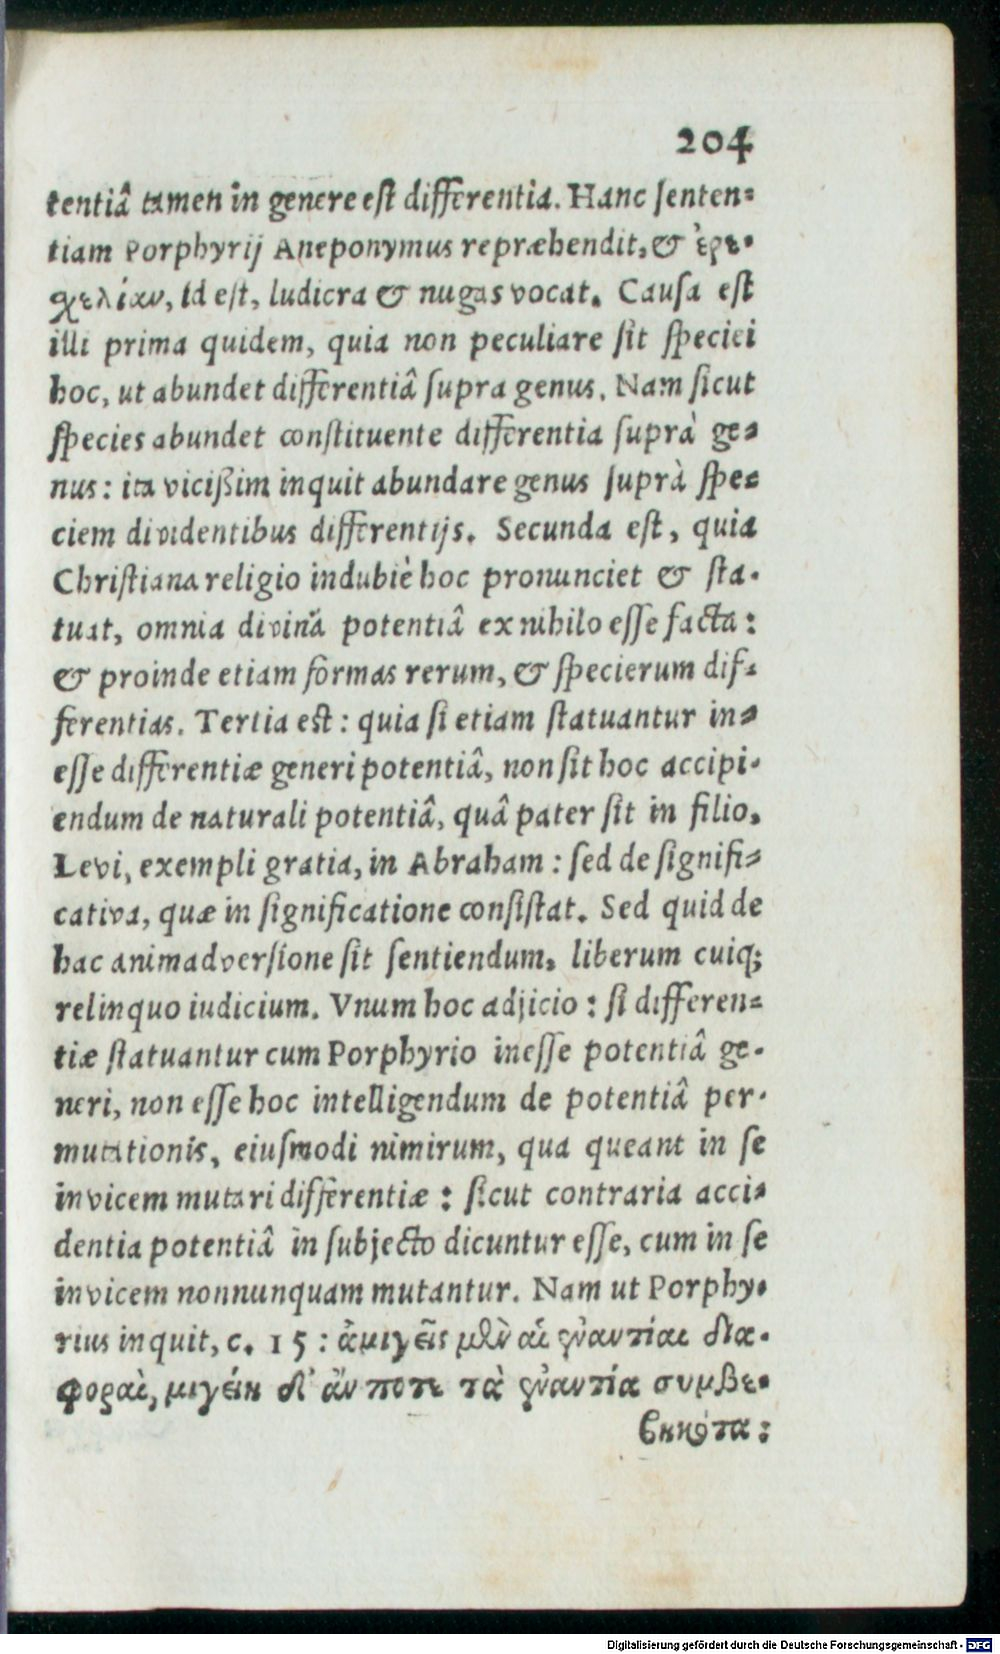 204
tentiâ tamen in genere est differentia. Hanc senten-
tiam Porphyrij Aneponymus repræhendit, & ἐρε-
χελίαν, id est, ludicra & nugas vocat. Causa est
illi prima quidem, quia non peculiare sit speciei
hoc, ut abundet differentiâ supra genus. Nam sicut
species abundet constituente differentia suprà ge-
nus: ita vicißim inquit abundare genus suprà spe-
ciem dividentibus differentijs. Secunda est, quia
Christiana religio indubiè hoc pronunciet & sta-
tuat, omnia divinâ potentiâ ex nihilo esse facta:
& proinde etiam formas rerum, & specierum dif-
ferentias. Tertia est: quia si etiam statuantur in-
esse differentiæ generi potentiâ, non sit hoc accipi-
endum de naturali potentiâ, quâ pater sit in filio,
Levi, exempli gratia, in Abraham: sed de signifi-
cativa, quæ in significatione consistat. Sed quid de
hac animadversione sit sentiendum, liberum cuiq;
relinquo iudicium. Vnum hoc adjicio: si differen-
tiæ statuantur cum Porphyrio inesse potentiâ ge-
neri, non esse hoc intelligendum de potentiâ per-
mutationis, eiusmodi nimirum, qua queant in se
invicem mutari differentiæ: sicut contraria acci-
dentia potentiâ in subjecto dicuntur esse, cum in se
invicem nonnunquam mutantur. Nam ut Porphy-
rius inquit, c. 15: ἀμιγεῖς μὲν αἱ ἐναντίαι δια-
φοραὶ, μιγείη δ' ἄν ποτε τὰ ἐναντία συμβε-
βηκότα:
Digitalisierung gefördert durch die Deutsche Forschungsgemeinschaft - DFG